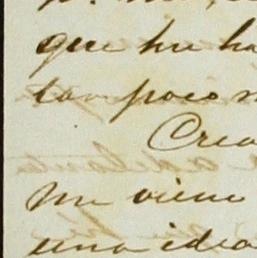 que he ha
tampoco
Creo
me viene
una idea